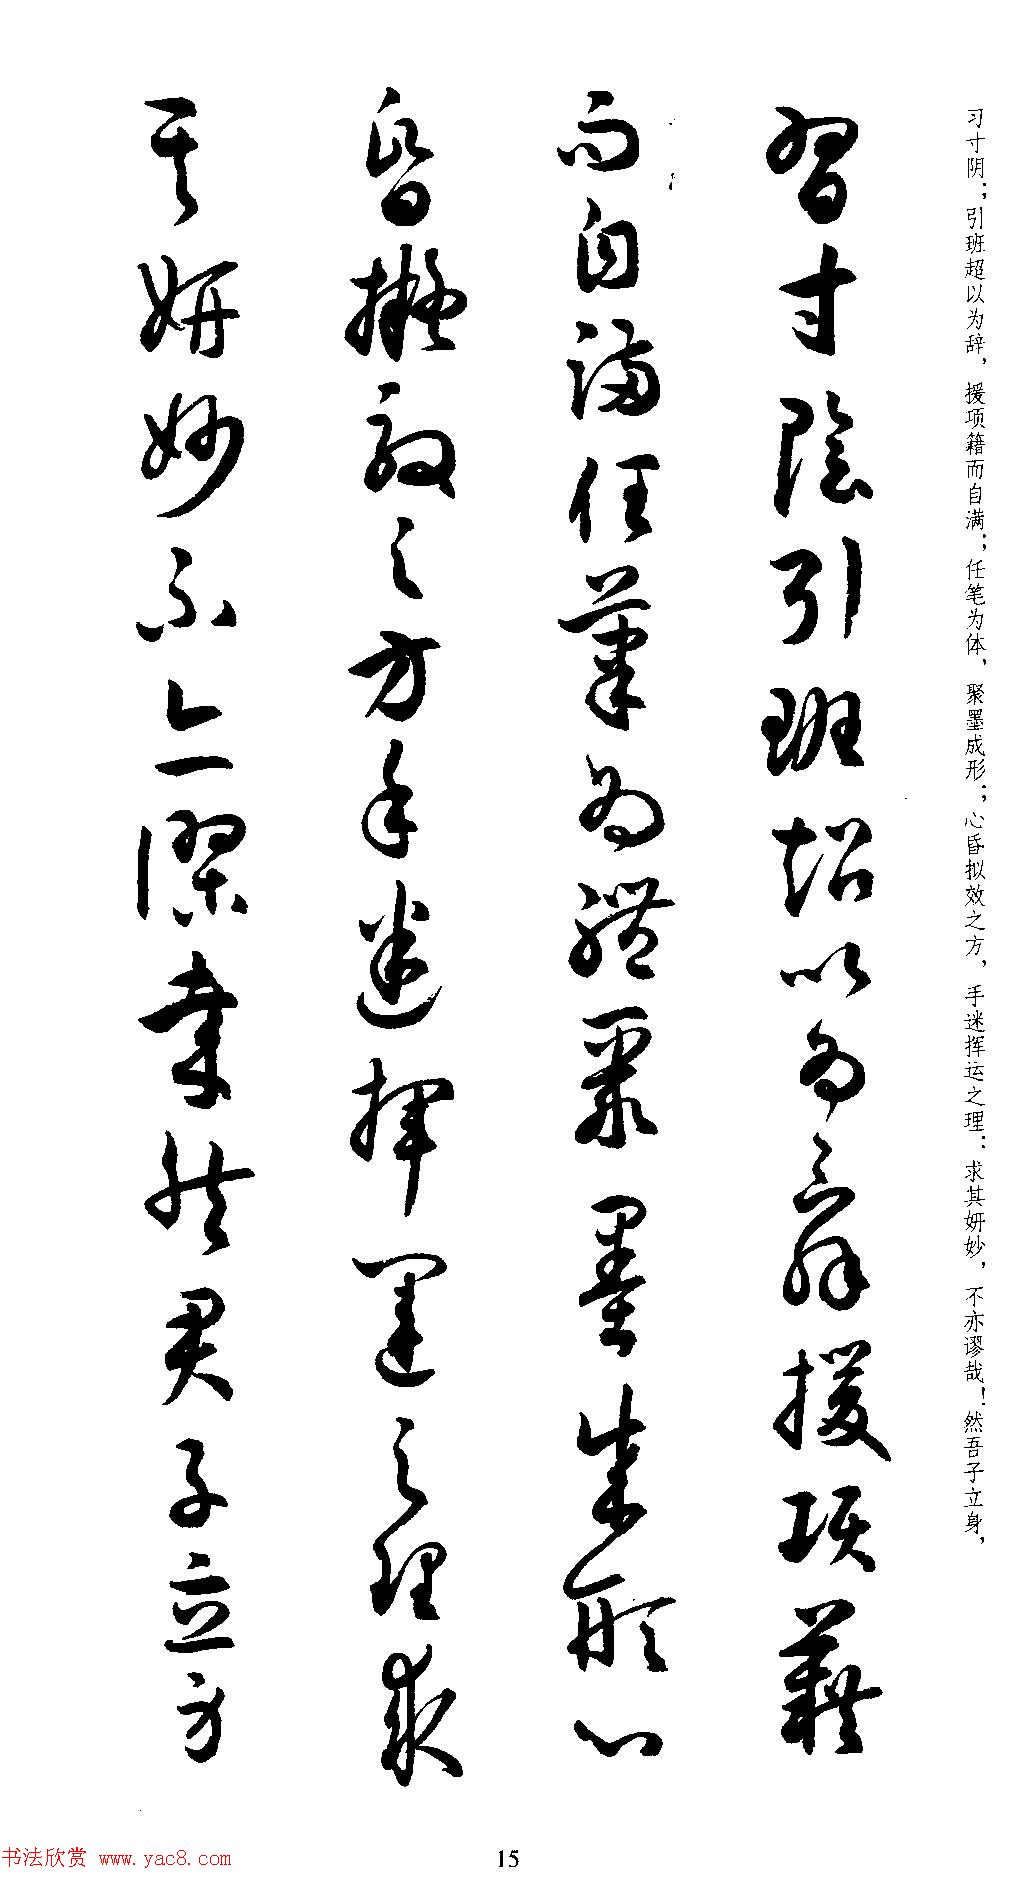 习寸阴；引班超以为辞，援项籍而自满；任笔为体，聚墨成形；心昏拟效之方，手迷挥运之理：求其妍妙，不亦谬哉！然吾子立身，
習寸陰引班超以為辭援項藉
而自滿任筆為體聚墨成形心
昏擬效之方手迷揮運之理求
其妍妙不亦謬哉然君子立身
书法欣赏 www.yac8.com
15